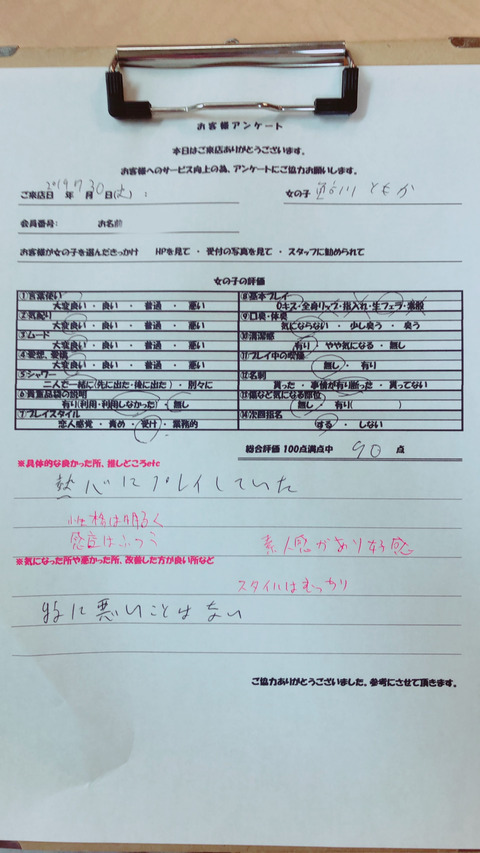 お客様アンケート
本日はご来店ありがとうございます。
お客様へのサービス向上の為、アンケートにご協力お願いします。
ご来店日 2019年 7月 30日(火) : 女の子 ともか
会員番号: お名前
お客様が女の子を選んだきっかけ HPを見て ・ 受付の写真を見て ・ スタッフに勧められて
女の子の評価
①言葉使い
大変良い ・ 良い ・ 普通 ・ 悪い
②気配り
大変良い ・ 良い ・ 普通 ・ 悪い
③ムード
大変良い ・ 良い ・ 普通 ・ 悪い
④愛想、愛嬌
大変良い ・ 良い ・ 普通 ・ 悪い
⑤シャワー
二人で一緒に(先に出た・後に出た) ・ 別々に
⑥貴重品袋の説明
有り(利用・利用しなかった) ・ 無し
⑦プレイスタイル
恋人感覚 ・ 責め ・ 受け ・ 業務的
⑧基本プレイ
Dキス・全身リップ・指入れ・生フェラ・素股
⑨口臭・体臭
気にならない ・ 少し臭う ・ 臭う
⑩清潔感
有り ・ やや気になる ・ 無し
⑪プレイ中の喫煙
無し ・ 有り
⑫名刺
貰った ・ 事情が有り断った ・ 貰ってない
⑬傷など気になる部位
無し ・ 有り( )
⑭次回指名
する ・ しない
総合評価 100点満点中 90 点
※具体的な良かった所、推しどころetc
熱心にプレイしていた
性格は明るく
感度はふつう 素人感があり好感
※気になった所や悪かった所、改善した方が良い所など
スタイルはむっちり
特に悪いことはない
ご協力ありがとうございました。参考にさせて頂きます。